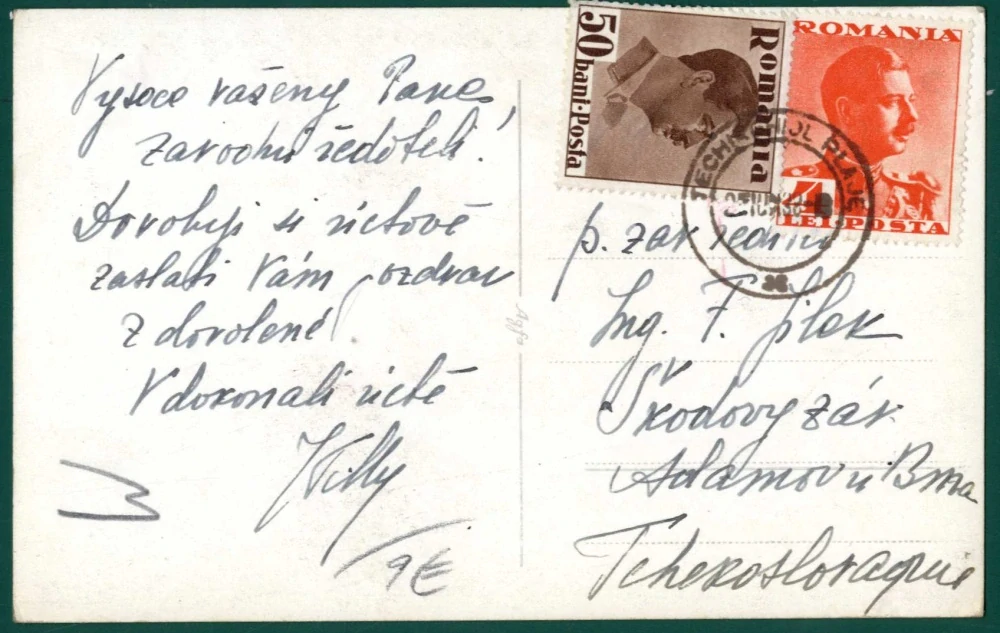 Vysoce vážený Pane
závodní řediteli!
Dovoluji si uctivě
zaslati Vám pozdrav
z dovolené
V dokonalé úctě
Willy
9€
Agfa
50 bani·Posta
Romania
ROMANIA
4
LEI POSTA
TECHIRGHIOL PLAJE
p. záv. ředitel
Ing. F. Jilek
Škodovy záv.
Adamov u Brna
Tchekoslovaquie